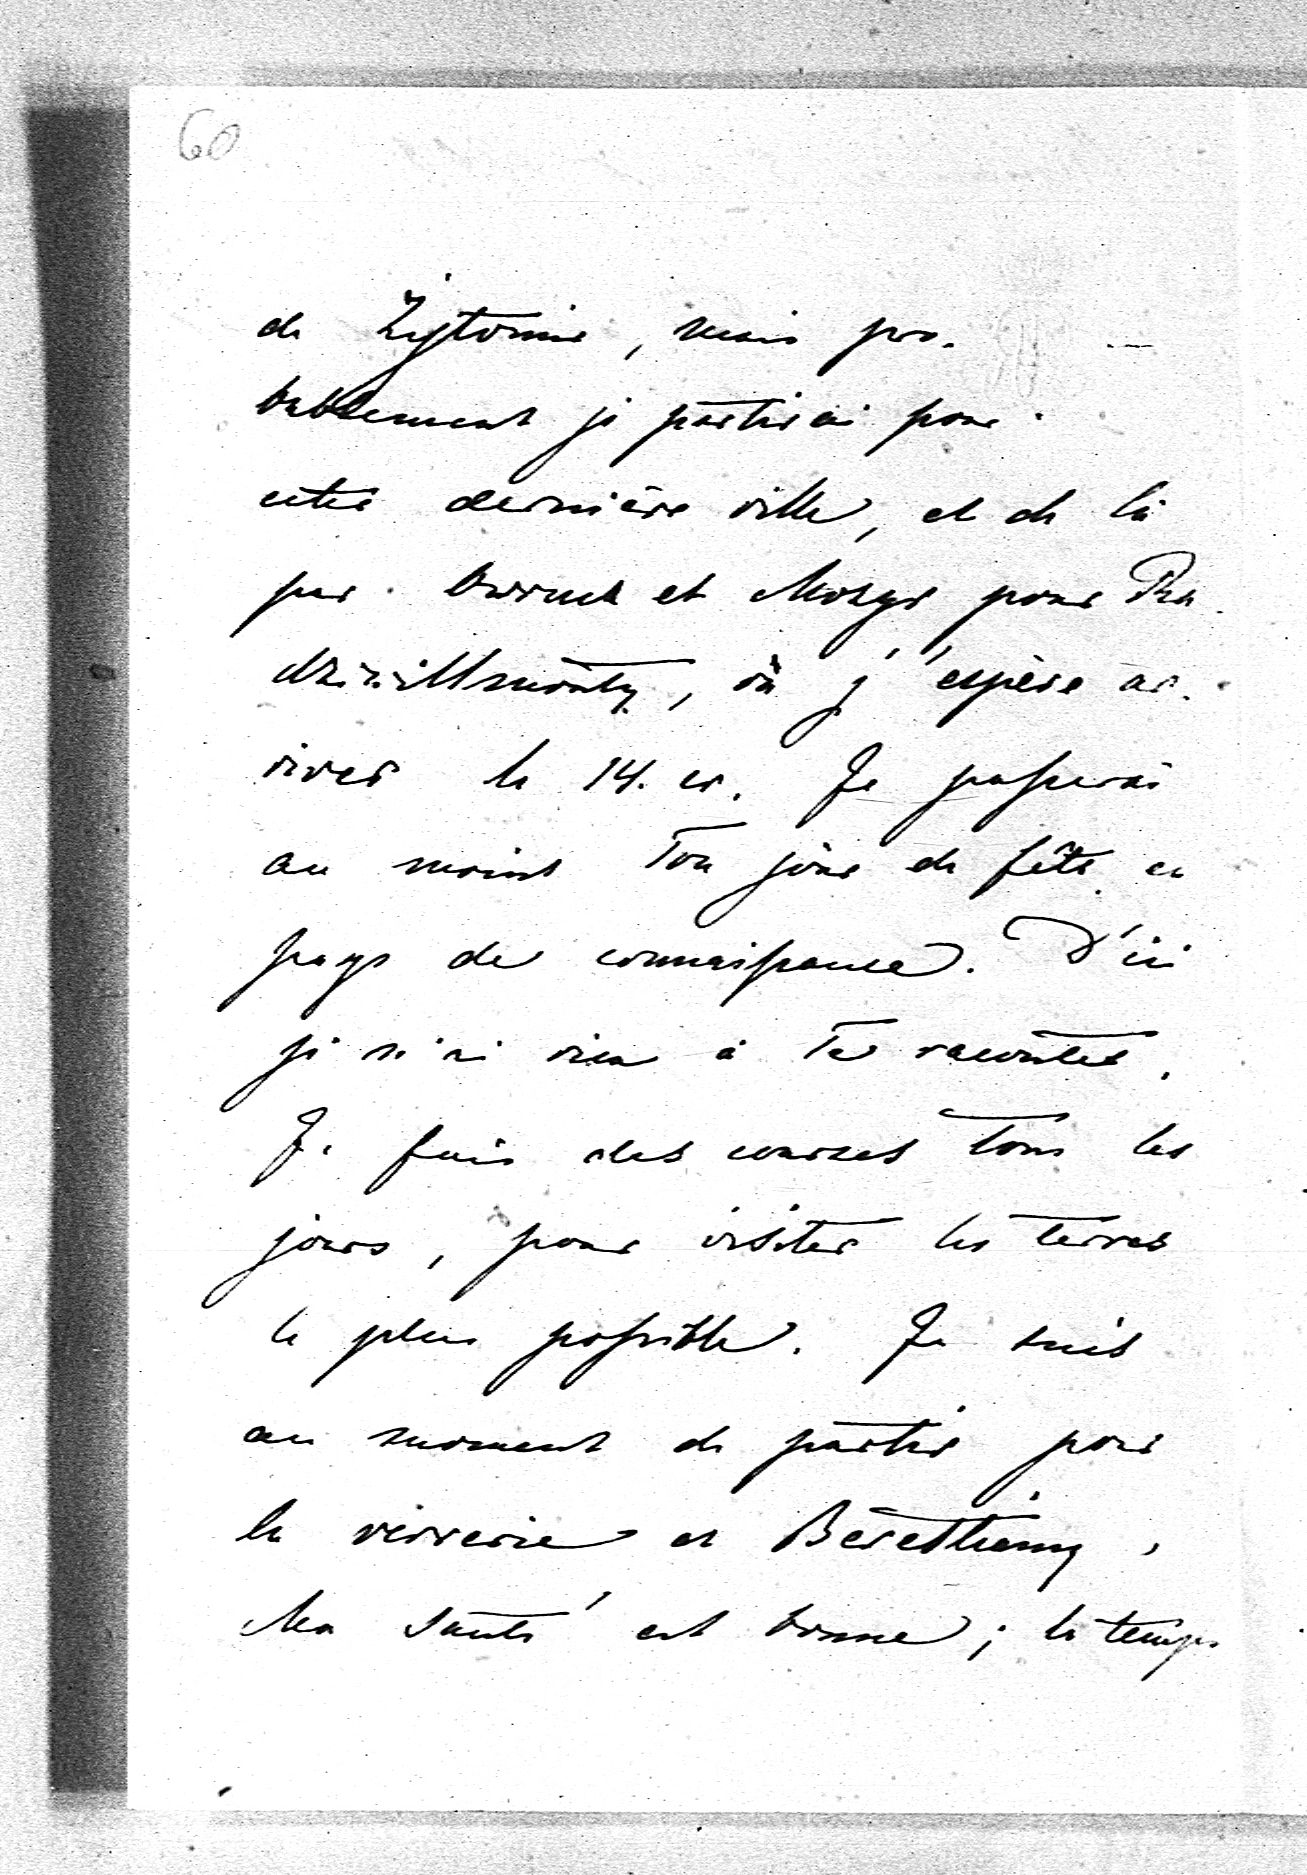 60
de Żytomir, mais pro-
bablement je partirai pour
cette dernière ville, et de là
par Owrucz et Mozyr pour Ra-
dziwillmonty, où j'espère ar-
river le 14. cr. Je passerai
au moins Ton jour de fête en
pays de connaissance. D'ici
je n'ai rien à Te raconter.
Je fais des courses tous les
jours, pour visiter les terres
le plus possible. Je suis
au moment de partir pour
la verrerie et
Ma santé est bonne; le temps